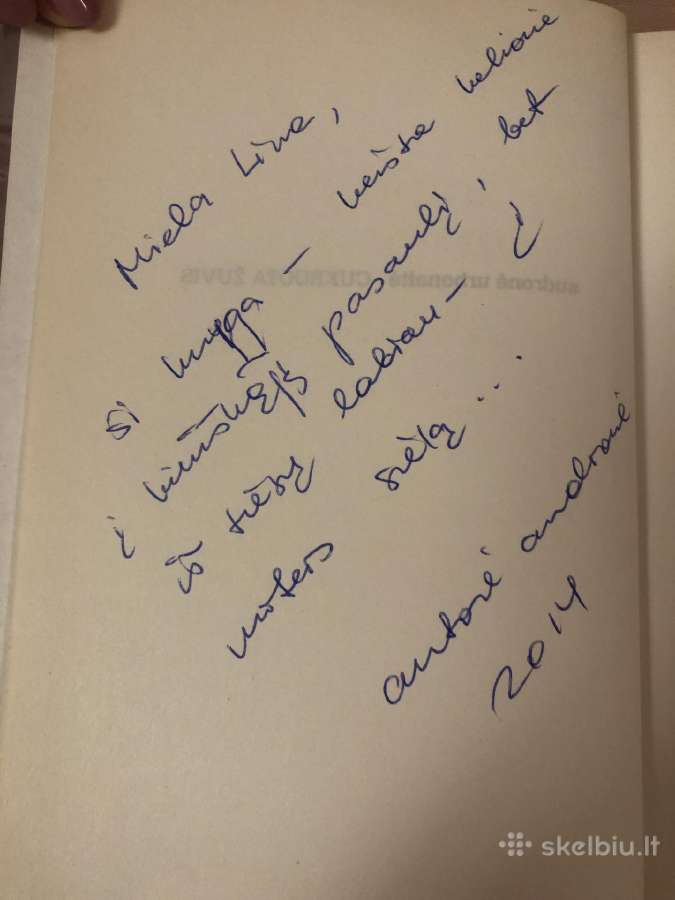 Miela Lina,
ši knyga – keista kelionė
į kiniškąjį pasaulį, bet
iš tiesų labiau – į
moters sielą...
autorė audronė
2014
audronė urbonaitė CUKRUOTA ŽUVIS
skelbiu.lt